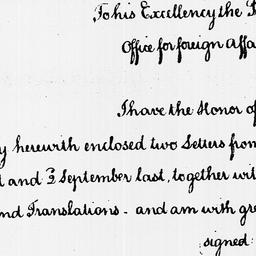 To his Excellency the
Office for foreign Affa
I have the Honor of
y herewith enclosed two Letters from
and 3 September last, together wit
nd Translations - and am with gre
signed: